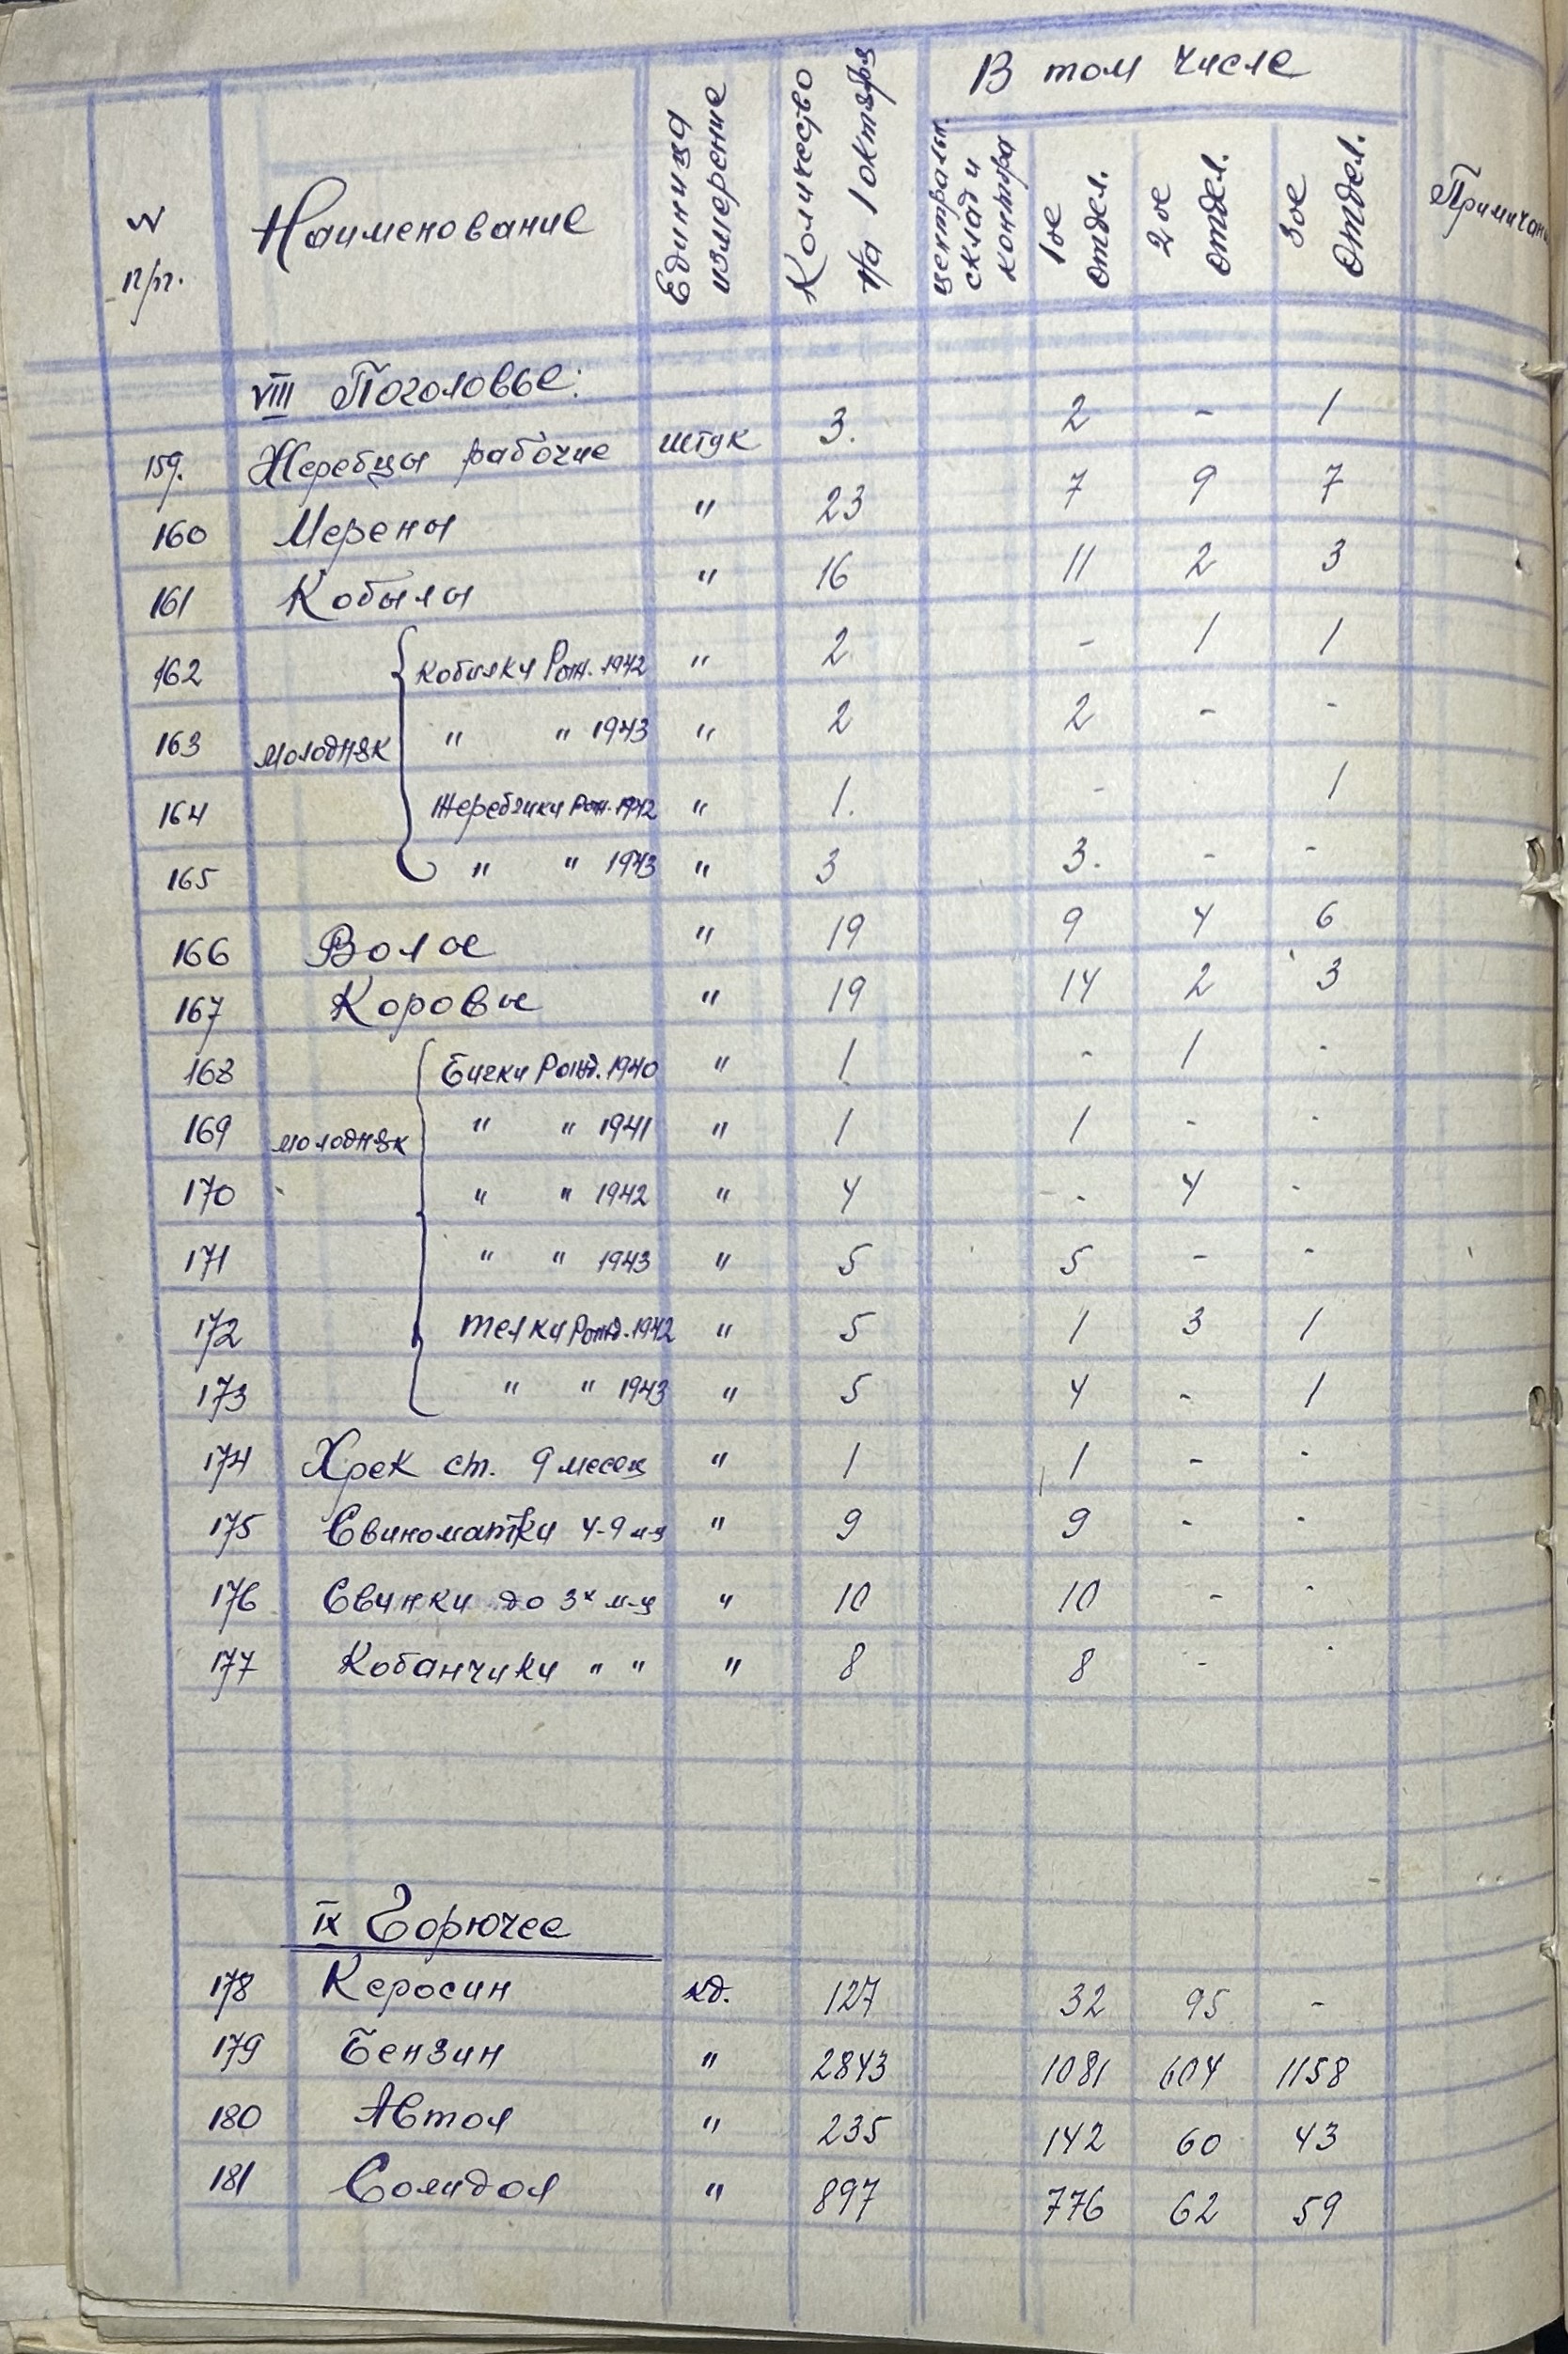 В том числе
N п/п. Наименование Единица измерение Количество на 1 октября централь. склад и контора 1ое отдел. 2ое отдел. 3ое отдел. Примичан
VIII Поголовье:
159. Жеребцы рабочие штук 3. 2 - 1
160 Мерены " 23 7 9 7
161 Кобылы " 16 11 2 3
162 Кобилки Рож. 1942 " 2 - 1 1
163 молодняк " " 1943 " 2 2 - -
164 Жеребчики Рож. 1942 " 1. - 1
165 " " 1943 " 3 3. - -
166 Волы " 19 9 4 6
167 Коровы " 19 14 2 3
168 Бички Рожд. 1940 " 1 - 1 -
169 молодняк " " 1941 " 1 1 - -
170 " " 1942 " 4 - 4 -
171 " " 1943 " 5 5 - -
172 Телки Рожд. 1942 " 5 1 3 1
173 " " 1943 " 5 4 - 1
174 Хрек ст. 9 месец " 1 1 - -
175 Свиноматки 4-9 м-ц " 9 9 - -
176 Свинки до 3х м-ц " 10 10 - -
177 Кобанчики " " " 8 8 - -
IX Горючее
178 Керосин кг. 127 32 95 -
179 Бензин " 2843 1081 604 1158
180 Автол " 235 142 60 43
181 Солидол " 897 776 62 59